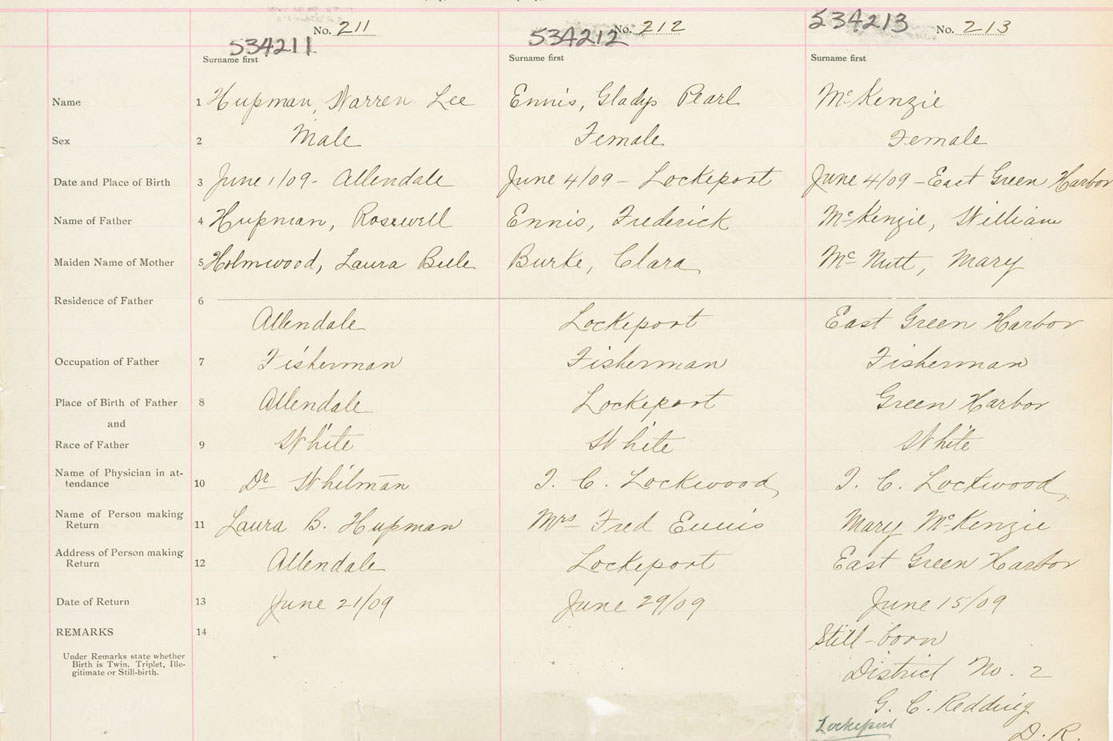 No. 211 No. 212 No. 213
534211 534212 534213
Surname first Surname first Surname first
Name 1 Hupman, Warren Lee Ennis, Gladys Pearl McKenzie
Sex 2 Male Female Female
Date and Place of Birth 3 June 1/09 - Allendale June 4/09 - Lockeport June 4/09 - East Green Harbor
Name of Father 4 Hupman, Rosewell Ennis, Frederick McKenzie, William
Maiden Name of Mother 5 Holmwood, Laura Belle Burke, Clara McNutt, Mary
Residence of Father 6
Allendale Lockeport East Green Harbor
Occupation of Father 7 Fisherman Fisherman Fisherman
Place of Birth of Father 8 Allendale Lockeport Green Harbor
and
Race of Father 9 White White White
Name of Physician in at-
tendance 10 Dr Whitman I. C. Lockwood I. C. Lockwood
Name of Person making
Return 11 Laura B. Hupman Mrs Fred Ennis Mary McKenzie
Address of Person making
Return 12 Allendale Lockeport East Green Harbor
Date of Return 13 June 21/09 June 29/09 June 15/09
REMARKS 14 Still-born
Under Remarks state whether
Birth is Twin, Triplet, Ille-
gitimate or Still-birth.
District No. 2
G. C. Redding
Lockeport D. R.